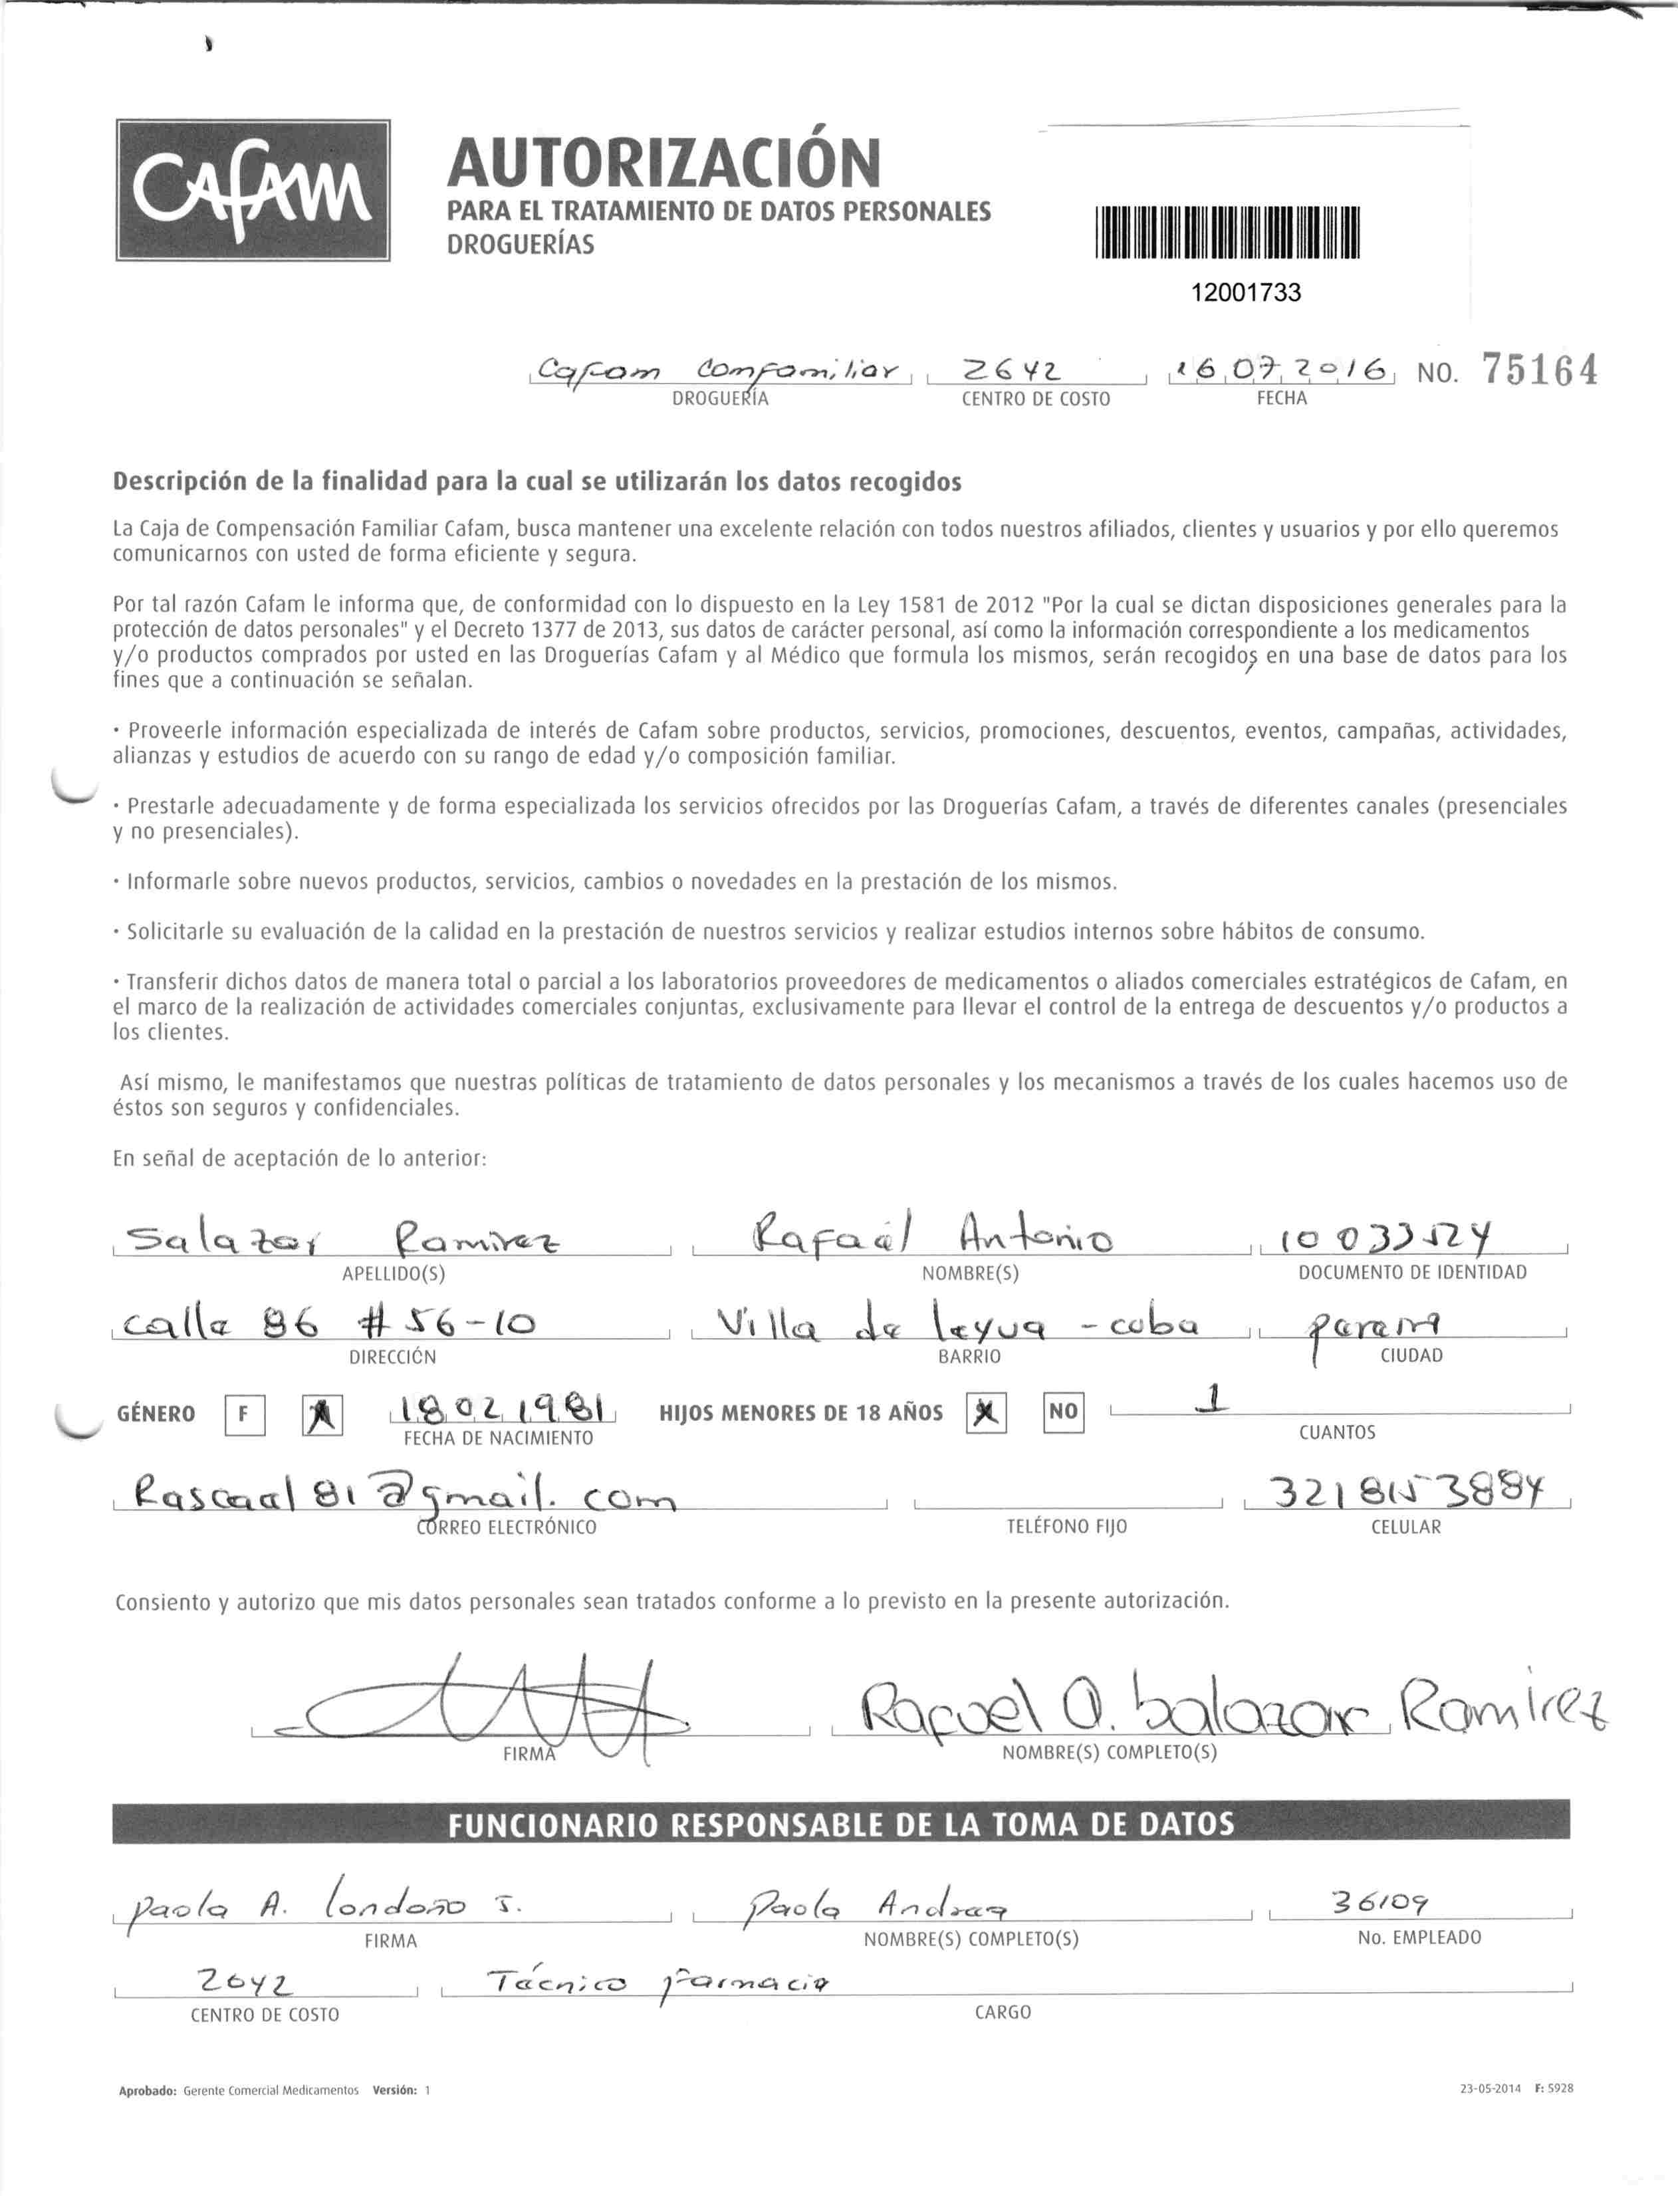 CAFAM
AUTORIZACIÓN
PARA EL TRATAMIENTO DE DATOS PERSONALES
DROGUERÍAS
12001733
Cafam Comfamiliar 2642 16 07 2016 NO. 75164
DROGUERÍA CENTRO DE COSTO FECHA
Descripción de la finalidad para la cual se utilizarán los datos recogidos
La Caja de Compensación Familiar Cafam, busca mantener una excelente relación con todos nuestros afiliados, clientes y usuarios y por ello queremos
comunicarnos con usted de forma eficiente y segura.
Por tal razón Cafam le informa que, de conformidad con lo dispuesto en la Ley 1581 de 2012 "Por la cual se dictan disposiciones generales para la
protección de datos personales" y el Decreto 1377 de 2013, sus datos de carácter personal, así como la información correspondiente a los medicamentos
y/o productos comprados por usted en las Droguerías Cafam y al Médico que formula los mismos, serán recogidos en una base de datos para los
fines que a continuación se señalan.
· Proveerle información especializada de interés de Cafam sobre productos, servicios, promociones, descuentos, eventos, campañas, actividades,
alianzas y estudios de acuerdo con su rango de edad y/o composición familiar.
· Prestarle adecuadamente y de forma especializada los servicios ofrecidos por las Droguerías Cafam, a través de diferentes canales (presenciales
y no presenciales).
· Informarle sobre nuevos productos, servicios, cambios o novedades en la prestación de los mismos.
· Solicitarle su evaluación de la calidad en la prestación de nuestros servicios y realizar estudios internos sobre hábitos de consumo.
· Transferir dichos datos de manera total o parcial a los laboratorios proveedores de medicamentos o aliados comerciales estratégicos de Cafam, en
el marco de la realización de actividades comerciales conjuntas, exclusivamente para llevar el control de la entrega de descuentos y/o productos a
los clientes.
Así mismo, le manifestamos que nuestras políticas de tratamiento de datos personales y los mecanismos a través de los cuales hacemos uso de
éstos son seguros y confidenciales.
En señal de aceptación de lo anterior:
Salazar Ramirez Rafael Antonio 10033524
APELLIDO(S) NOMBRE(S) DOCUMENTO DE IDENTIDAD
calle 86 # 56-10 Villa de leyua - cuba
DIRECCIÓN BARRIO CIUDAD
GÉNERO F 18 02 1981 HIJOS MENORES DE 18 AÑOS NO 1
FECHA DE NACIMIENTO CUANTOS
Rascaal81@gmail.com 3218153884
CORREO ELECTRÓNICO TELÉFONO FIJO CELULAR
Consiento y autorizo que mis datos personales sean tratados conforme a lo previsto en la presente autorización.
Rafael A. Salazar Ramirez
FIRMA NOMBRE(S) COMPLETO(S)
FUNCIONARIO RESPONSABLE DE LA TOMA DE DATOS
Paola A. Londoño S. Paola Andrea 36109
FIRMA NOMBRE(S) COMPLETO(S) No. EMPLEADO
2642 Técnico Farmacia
CENTRO DE COSTO CARGO
Aprobado: Gerente Comercial Medicamentos Versión: 1 23-05-2014 F: 5928